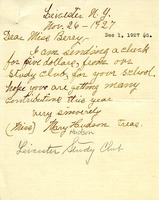 Leicester N.Y.
Nov. 26 - 1927
Dear Miss Berry -
Dec 1, 1927 $5.
I am sending a check
for five dollars, from our
Study Club, for your school.
hope you are getting many
contributions this year
very sincerely
(Miss) Mary Hudson Treas.
Hudson
Leicester Study Club